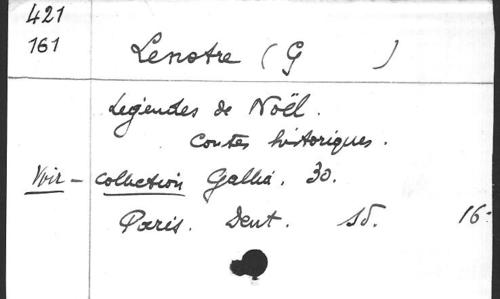 421
161
Lenotre (G )
Légendes de Noël.
Contes historiques.
Voir - Collection Gallia. 30.
Paris. Dent. sd. 16: